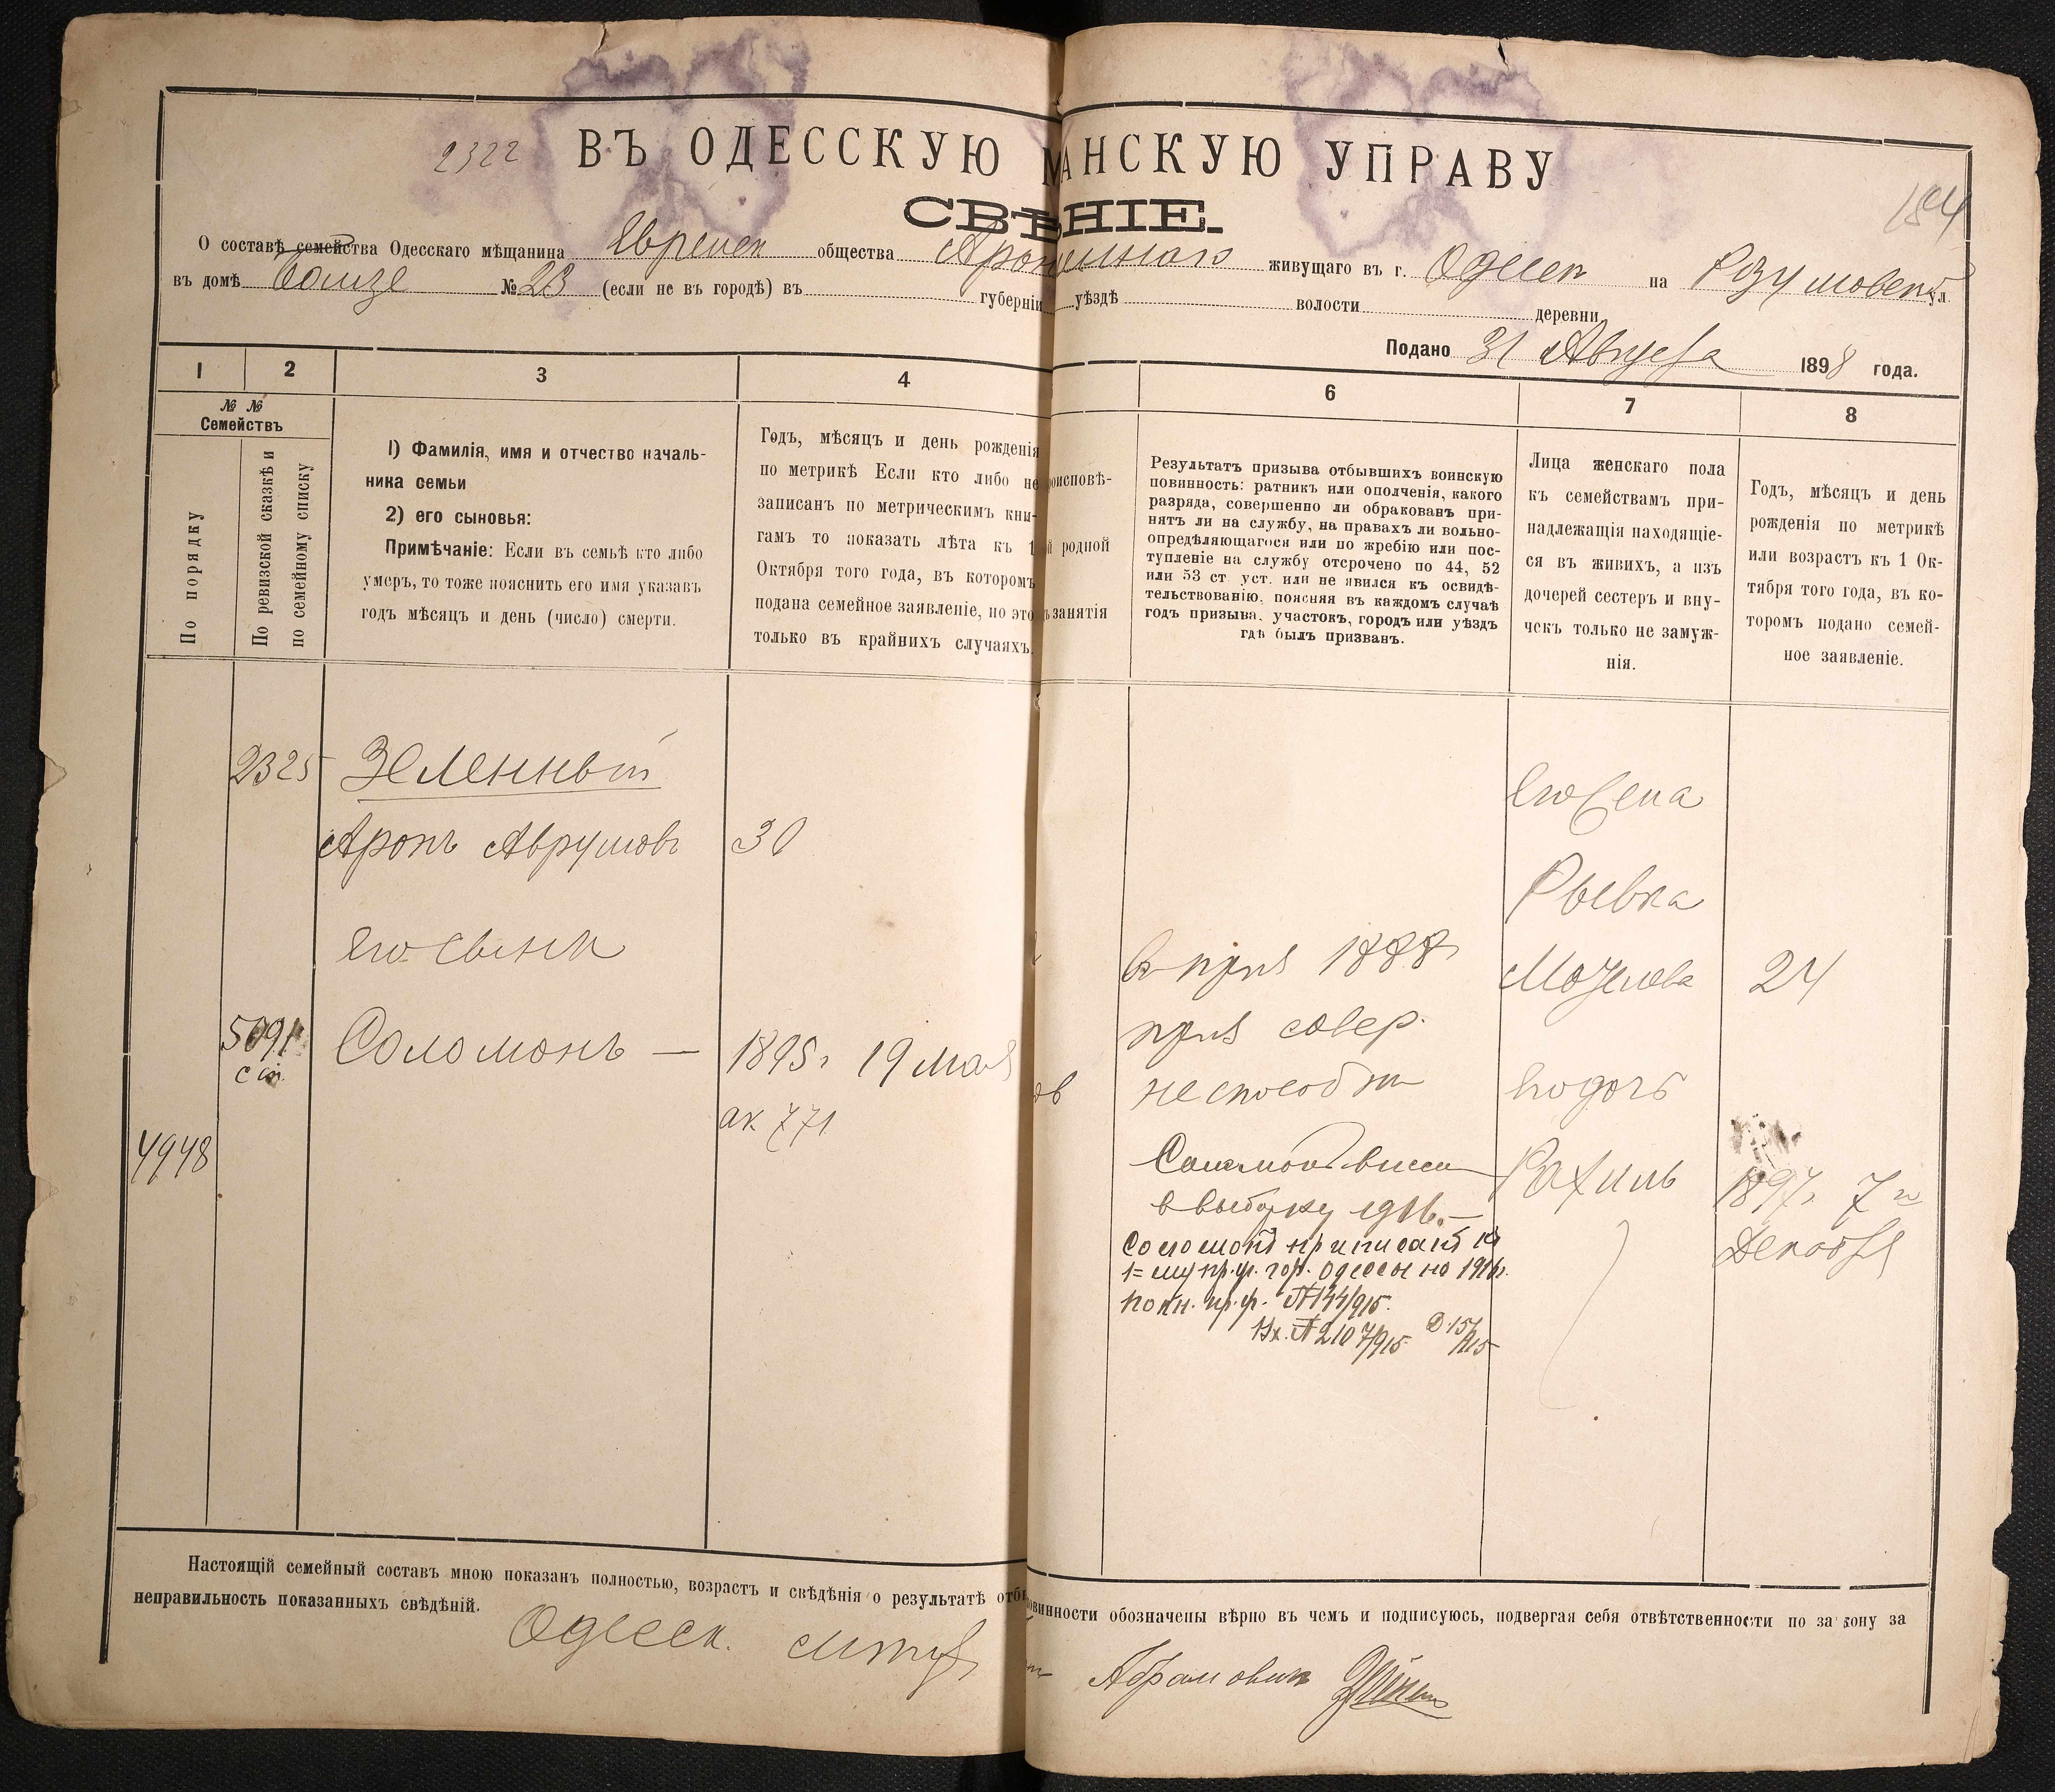 2322 ВЪ ОДЕССКУЮ М АНСКУЮ УПРАВУ
184
СВѢ НІЕ.
О составѣ семейства Одесскаго мѣщанина общества живущаго въ г. Одессѣ на ул.
въ домѣ №23 (если не въ городѣ) въ губерніи уѣздѣ волости деревни
Подано 31 Августа 1898 года.
1 2 3 4 6 7 8
№ №
Семействъ
По порядку
По ревизской сказкѣ и
по семейному списку
1) Фамилія, имя и отчество началь-
ника семьи
2) его сыновья:
Примѣчаніе: Если въ семьѣ кто либо
умеръ, то тоже пояснить его имя указавъ
годъ мѣсяцъ и день (число) смерти.
Годъ, мѣсяцъ и день рожденія
по метрикѣ Если кто либо не
записанъ по метрическимъ кни-
гамъ то показать лѣта къ 1
Октября того года, въ которомъ
подана семейное заявленіе, но это
только въ крайнихъ случаяхъ.
оисповѣ-
й родной
занятія
Результатъ призыва отбывшихъ воинскую
повинность: ратникъ или ополченія, какого
разряда, совершенно ли обракованъ при-
нятъ ли на службу, на правахъ ли вольно-
опредѣляющагося или по жребію или пос-
тупленіе на службу отсрочено по 44, 52
или 53 ст. уст. или не явился къ освидѣ-
тельствованію, поясняя въ каждомъ случаѣ
годъ призыва, участокъ, городъ или уѣздъ
гдѣ былъ призванъ.
Лица женскаго пола
къ семействамъ при-
надлежащія находящіе-
ся въ живихъ, а изъ
дочерей сестеръ и вну-
чекъ только не замуж-
нія.
Годъ, мѣсяцъ и день
рожденія по метрикѣ
или возрастъ къ 1 Ок-
тября того года, въ ко-
торомъ подано семей-
ное заявленіе.
2325 Зеленный
Аронъ Аврумовъ 30
его сынъ
5091 Соломонъ — 1895г 19 мая
ак 771
4948
1888
призв совер.
неспособн
Соломонъ внесен
в выборку 1916. —
Соломонъ приписанъ къ
1=му пр. уч. гор. Одессы на 1916г.
№ 144/915.
Вх. № 2107/915 Д. 15/915
его жена
Рывка
24
его дочь
Рахиль 1897г 7го
Декабря
Настоящій семейный составъ мною показанъ полностью, возрастъ и свѣдѣнія о результатѣ отбы овинности обозначены вѣрно въ чемъ и подписуюсь, подвергая себя отвѣтственности по закону за
неправильность показанныхъ свѣдѣній.
Одесск. Абрамовичъ